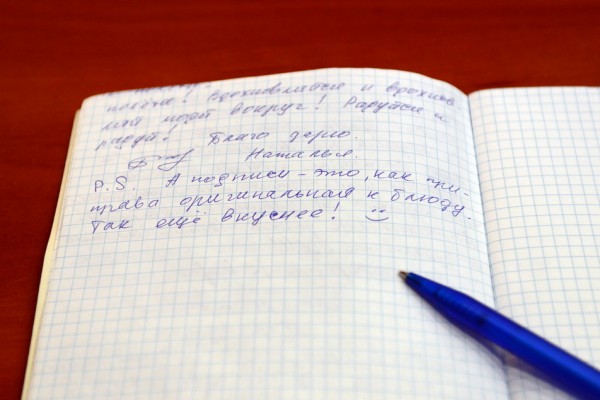 полёте! Вдохновляйся и вдохнов
ляй людей вокруг! Радуйся и
радуй!
Благо дарю.
Наталья.
P.S. А подписи - это, как при-
права оригинальная к блюду.
Так ещё вкуснее!